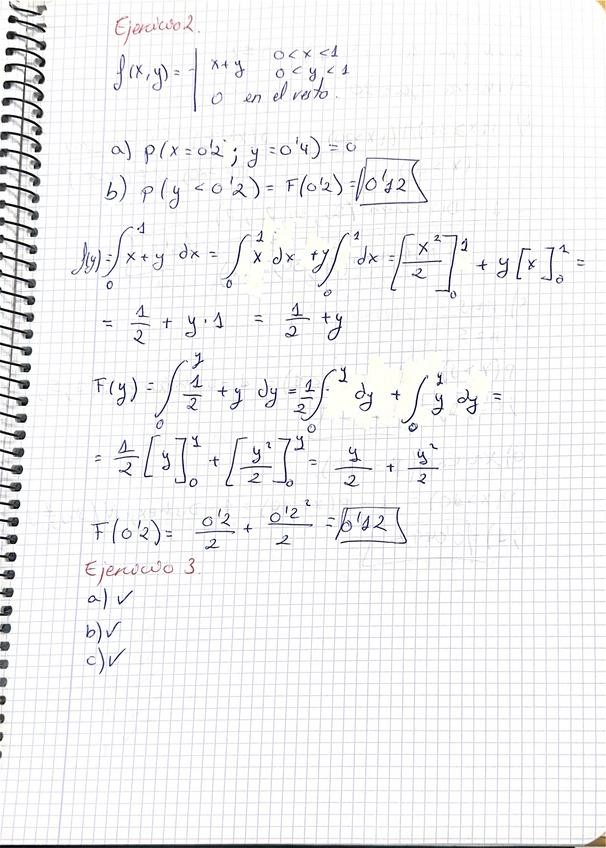 Ejercicio 2.
f(x,y) = { x+y 0<x<1
0<y<1
0 en el resto.
a) p(x=0'2; y=0'4) = 0
b) p(y<0'2) = F(0'2) = 0'12
f(y) = ∫₀¹ x+y dx = ∫₀¹ x dx + y ∫₀¹ dx = [x²/2]₀¹ + y [x]₀¹ =
= 1/2 + y·1 = 1/2 + y
F(y) = ∫₀ʸ 1/2 + y dy = 1/2 ∫₀ʸ dy + ∫₀ʸ y dy =
= 1/2 [y]₀ʸ + [y²/2]₀ʸ = y/2 + y²/2
F(0'2) = 0'2/2 + 0'2²/2 = 0'12
Ejercicio 3.
a) ✓
b) ✓
c) ✓